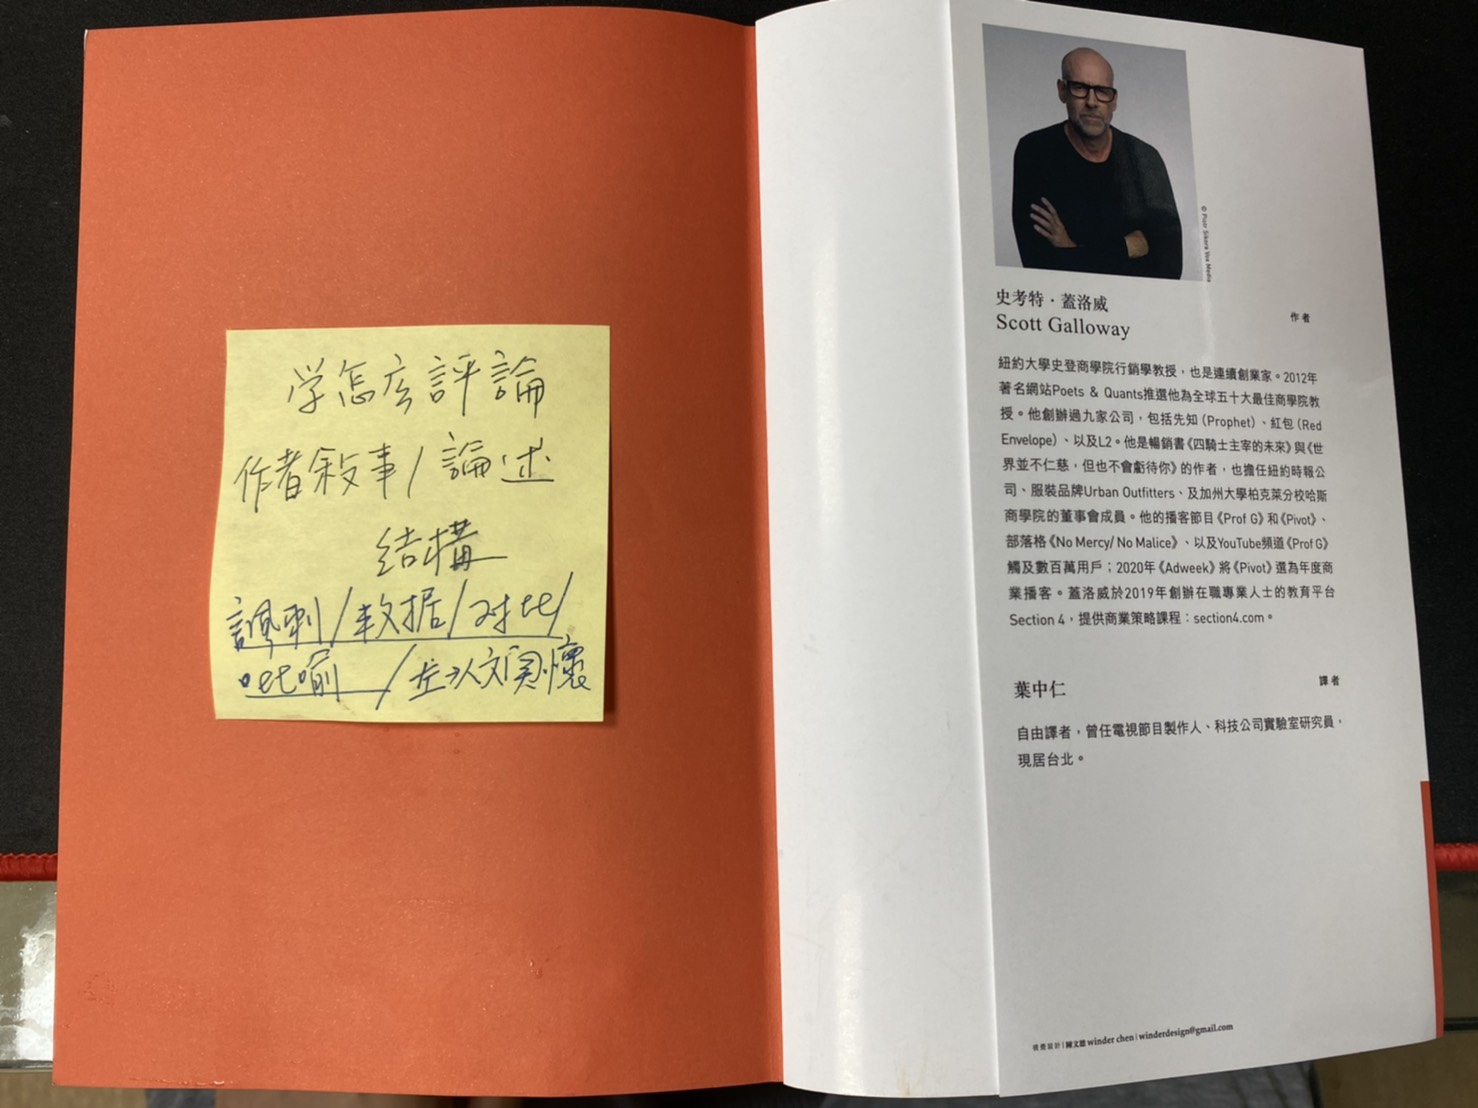 学怎么評論
作者敘事/論述
结構
諷刺/数据/对比/
比喻/左派文人関懷
© Piotr Sikora Vox Media
史考特·蓋洛威
Scott Galloway
作者
紐約大學史登商學院行銷學教授，也是連續創業家。2012年
著名網站Poets & Quants推選他為全球五十大最佳商學院教
授。他創辦過九家公司，包括先知（Prophet）、紅包（Red
Envelope）、以及L2。他是暢銷書《四騎士主宰的未來》與《世
界並不仁慈，但也不會虧待你》的作者，也擔任紐約時報公
司、服裝品牌Urban Outfitters、及加州大學柏克萊分校哈斯
商學院的董事會成員。他的播客節目《Prof G》和《Pivot》、
部落格《No Mercy/ No Malice》、以及YouTube頻道《Prof G》
觸及數百萬用戶；2020年《Adweek》將《Pivot》選為年度商
業播客。蓋洛威於2019年創辦在職專業人士的教育平台
Section 4，提供商業策略課程：section4.com。
葉中仁
譯者
自由譯者，曾任電視節目製作人、科技公司實驗室研究員，
現居台北。
視覺設計|陳文德 winder chen|winderdesign@gmail.com